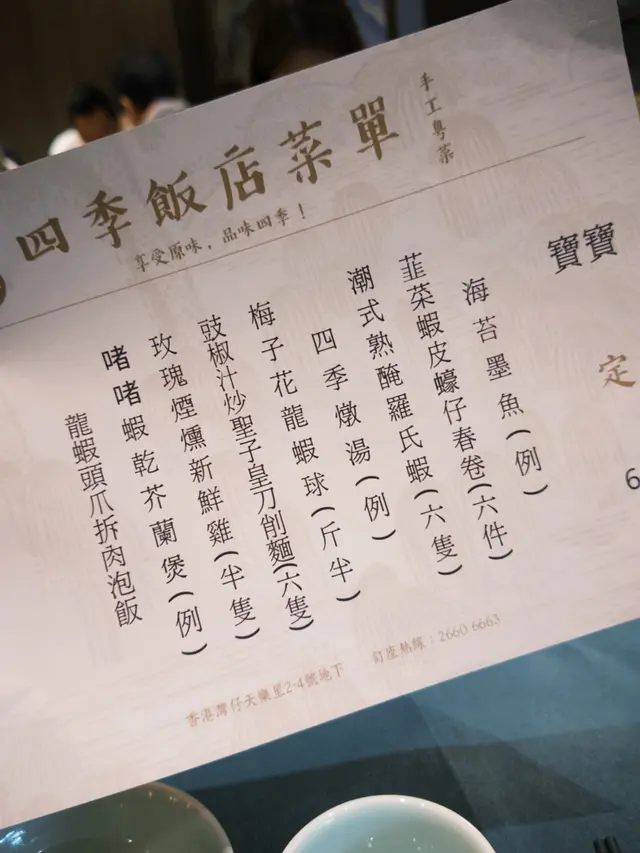 四季飯店菜單
手工粵菜
享受原味，品味四季！
寶寶
定
6
海苔墨魚(例)
韮菜蝦皮蠔仔春卷(六件)
潮式熟醃羅氏蝦(六隻)
四季燉湯(例)
梅子花龍蝦球(斤半)
豉椒汁炒聖子皇刀削麵(六隻)
玫瑰煙燻新鮮雞(半隻)
啫啫蝦乾芥蘭煲(例)
龍蝦頭爪拆肉泡飯
香港灣仔天樂里2-4號地下
訂座熱線：2660 6663